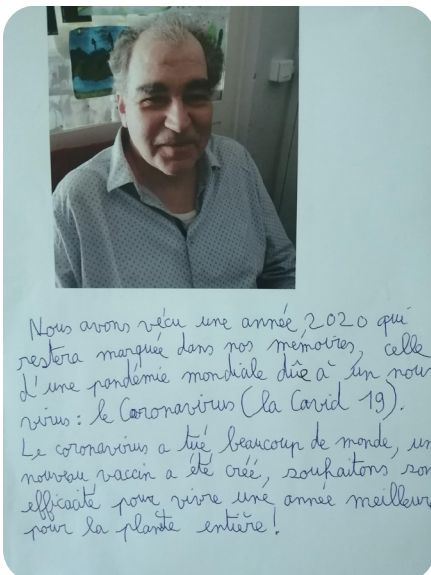 Nous avons vécu une année, 2020 qui
restera marquée dans nos mémoires, celle
d'une pandémie mondiale dûe à un nou
virus : le Coronavirus (la Covid 19).
Le coronavirus a tué beaucoup de monde, un
nouveau vaccin a été créé, souhaitons son
efficacité pour vivre une année meilleur
pour la planète entière !